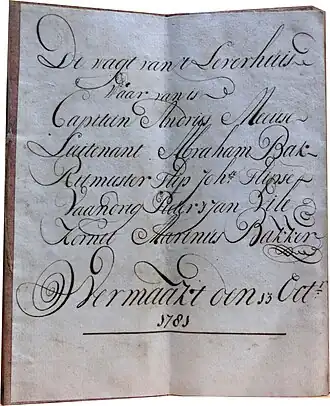 De vagt van 't Leverhuis
Waar van is
Capitein Andries Meuse
Lieutenant Abraham Bak
Ritmeester Flip Joh.s Flipse
Vaandrig Pieter Jan Zile
Kornet Marinus Bakker
Vermaakt den 13 Oct.r
1781